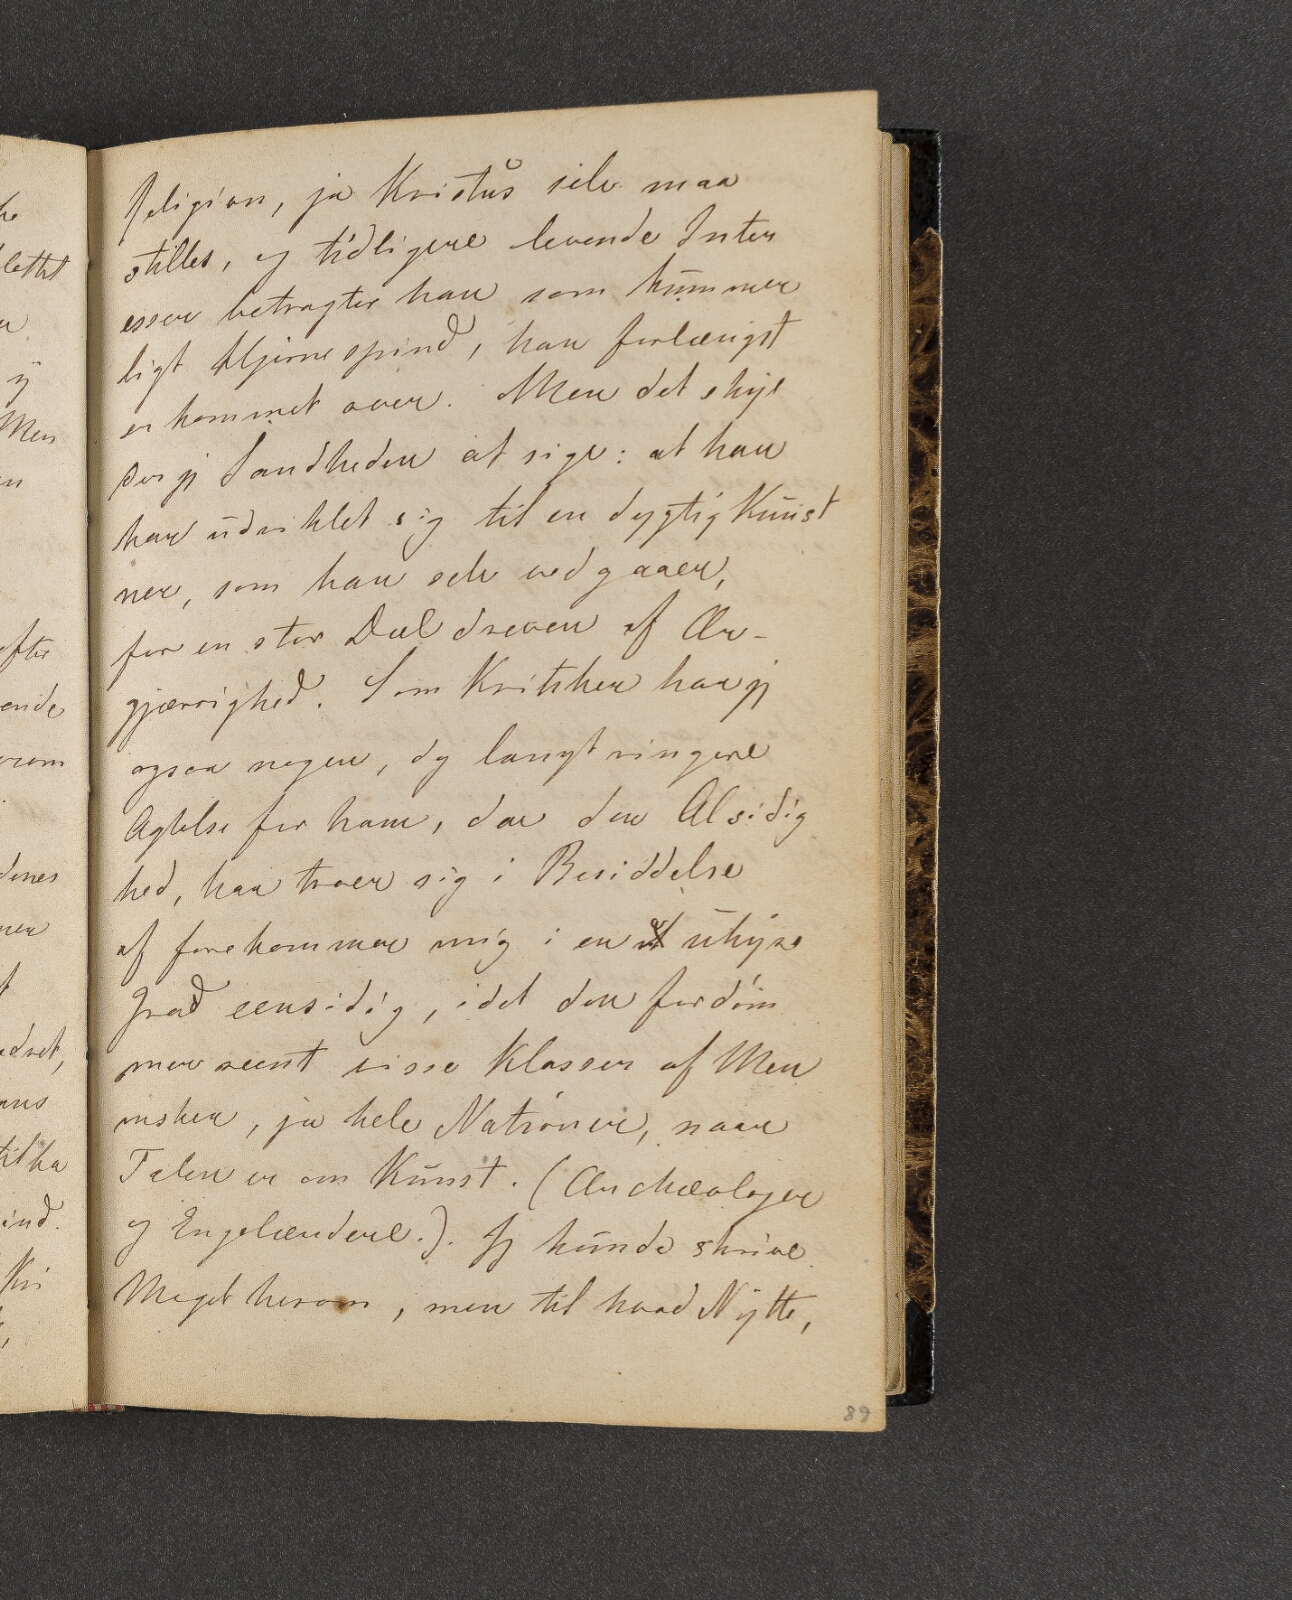 he
lettet
y
Men
en
efter
ende
orom
denes
ner
t
edret,
ans
tilha
ind.
Kri
Religion, ja Kristus selv maa
stilles, og tidligere levende Inter
esser betragter han som kummer
ligt Hjernespind, han forlængst
er kommet over. Men det skyl
der jeg Sandheden at sige: at han
har udviklet sig til en dygtig Kunst
ner, som han selv vedgaaer,
for en stor Deel dreven af Ær-
gjærrighed. Som Kritiker har jeg
ogsaa nogen, dog langt ringere
Agtelse for ham, da den Alsidig
hed, han troer sig i Besiddelse
af forekommer mig i en uhyre
Grad eensidig, idet den fordöm
mer reent visse Klasser af Men
nsker, ja hele Nationer, naar
Talen er om Kunst. (Archæologer
og Engelændere.). Jeg kunde skrive
Meget herom, men til hvad Nytte,
89